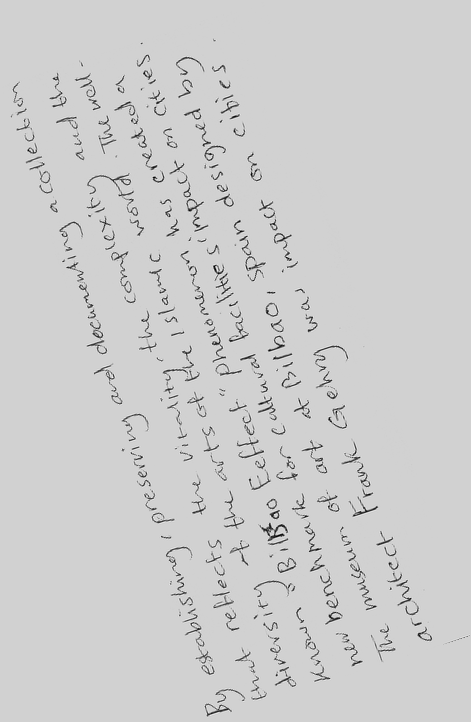 By establishing, preserving and documenting a collection
that reflects the vitality, the complexity and the
diversity of the arts of the Islamic world. The well-
known "Bilbao Eeffect" phenomenon has created a
new benchmark for cultural facilities' impact on cities.
The museum of art at Bilbao, Spain designed by
architect Frank Gehry was impact on cities.